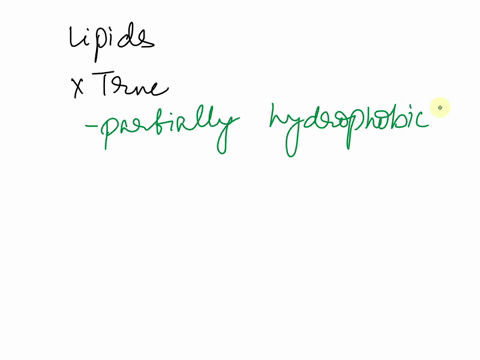 Lipids
x True
- partially hydrophobic